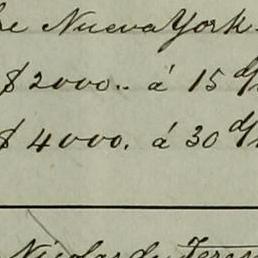 Nueva York
$ 2000.. á 15 d/
$ 4000. á 30 d/
Nicolas de